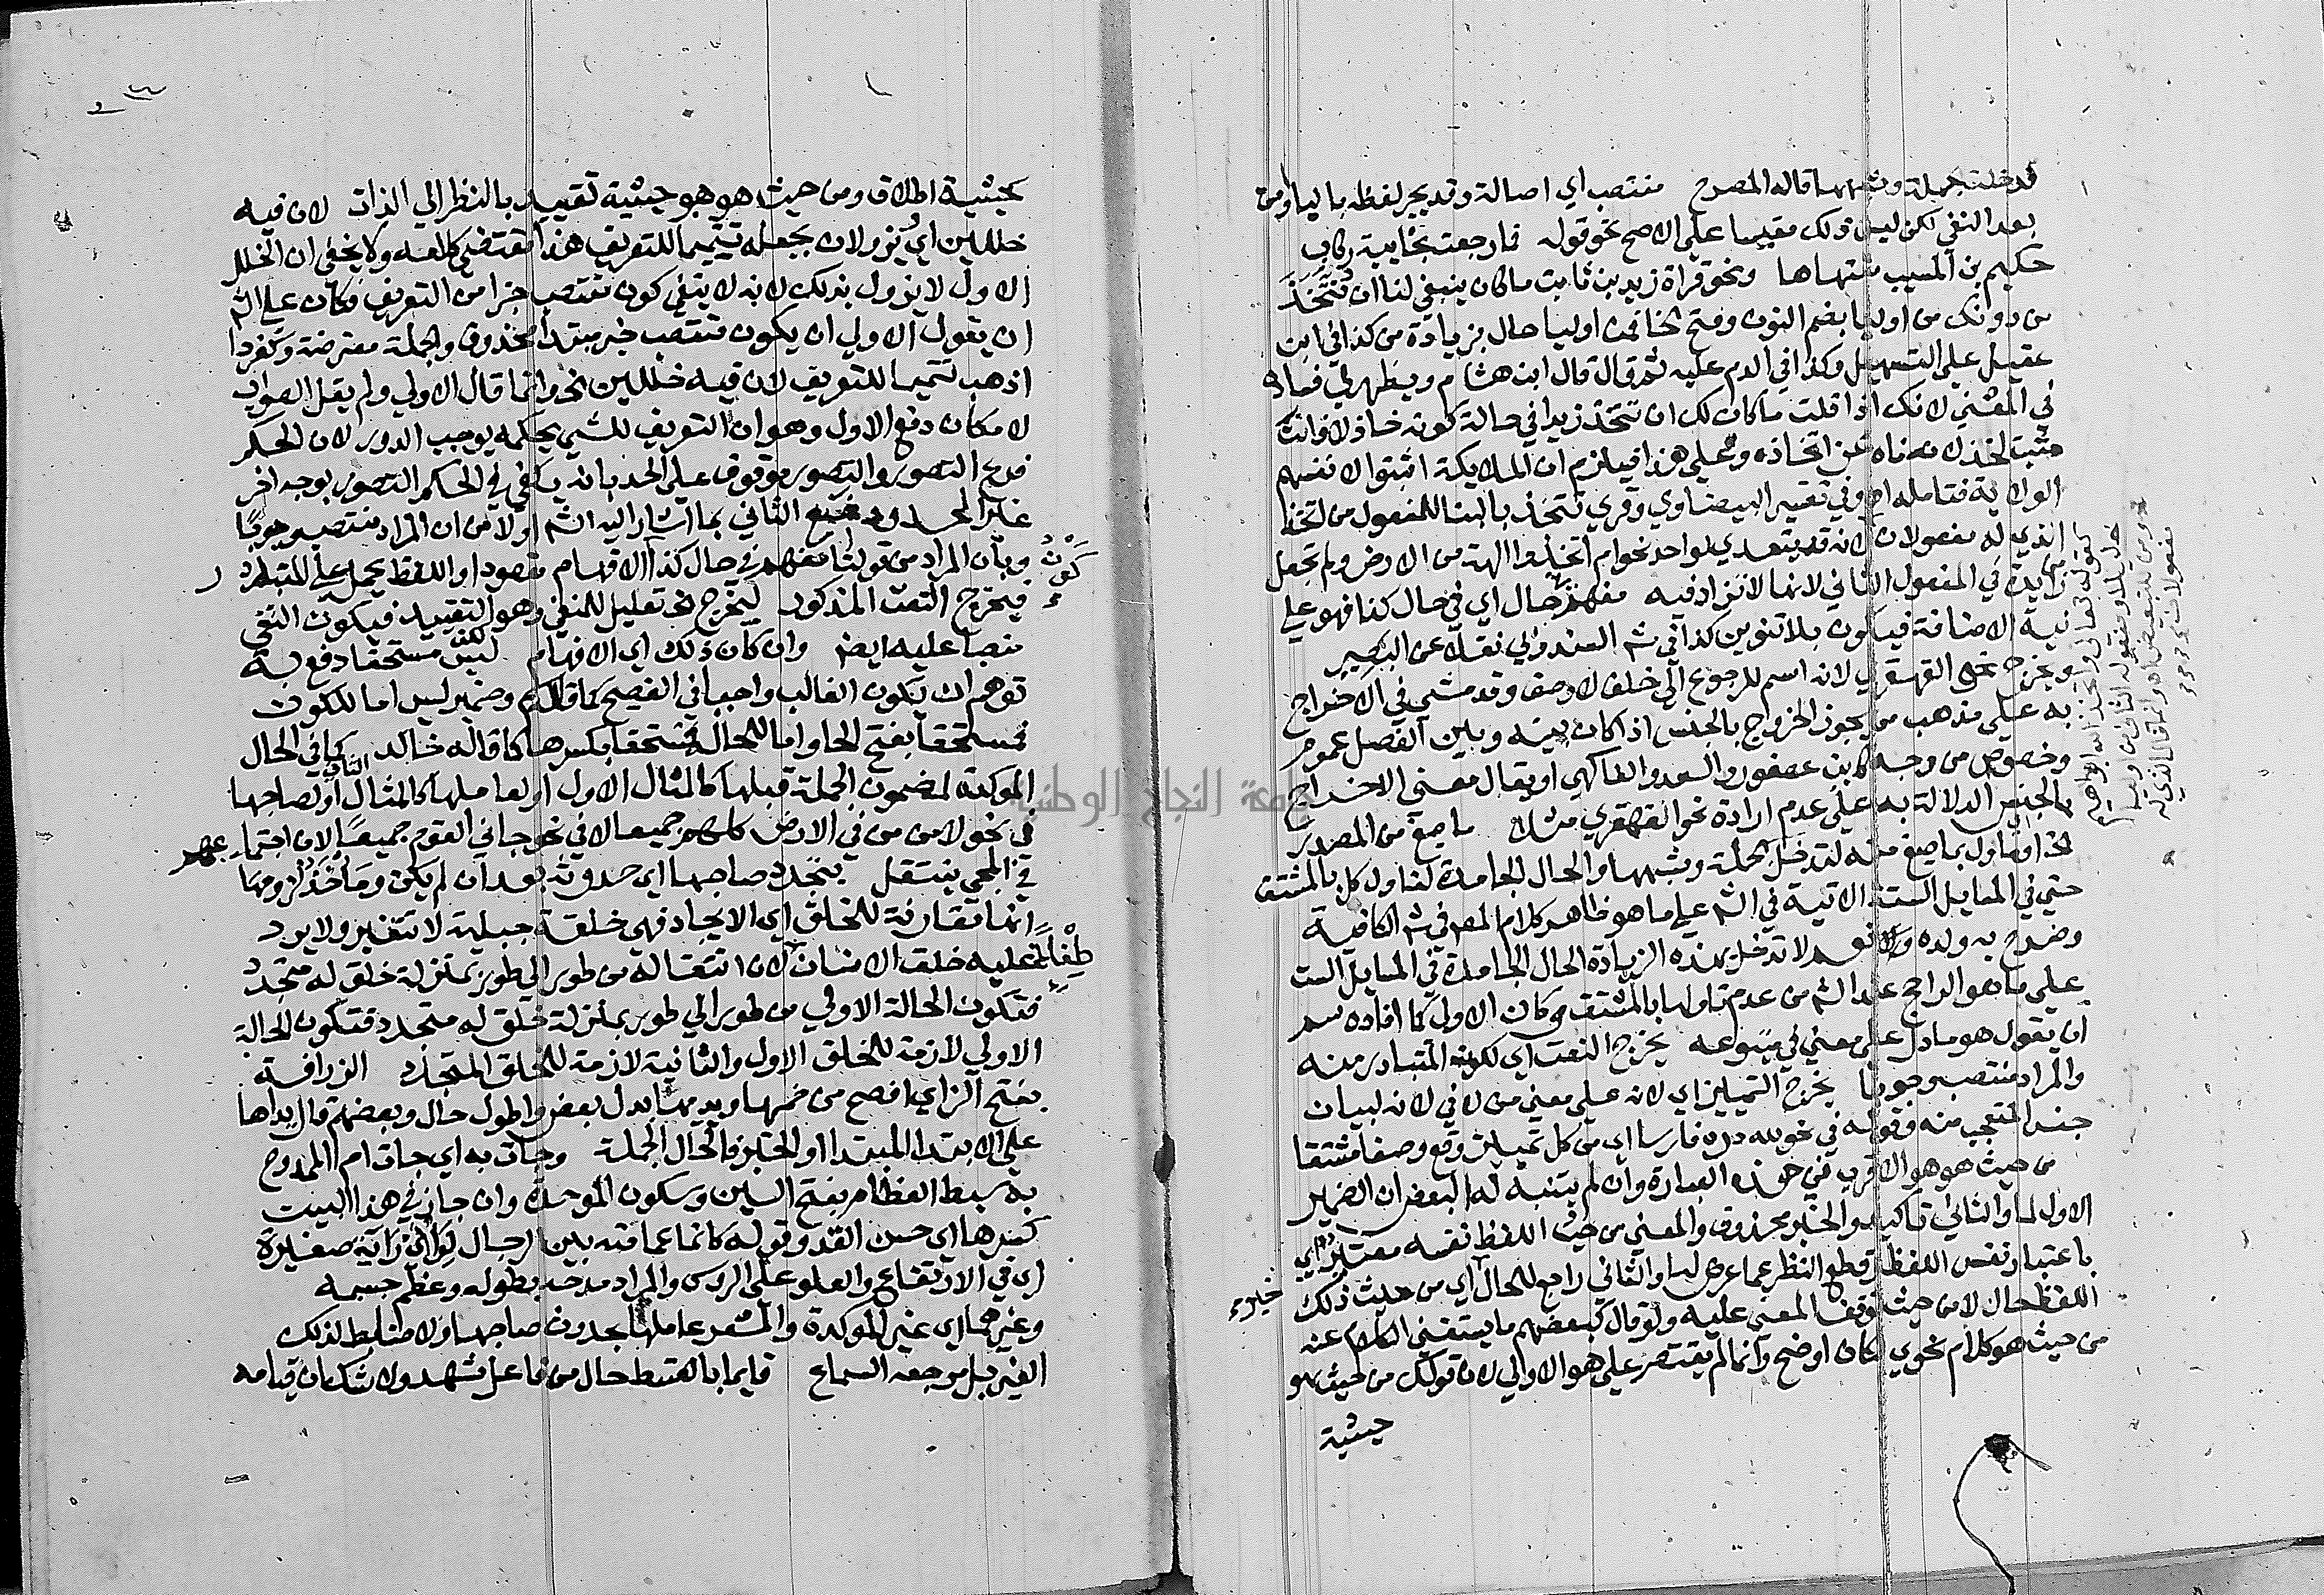 فدخلت جملة وشبهها قاله المصرح منتصب اي اصالة وقد يجر لفظه بالبا ومن
بعد النفي لكن ليس ذلك مقيسا على الاصح نحو قوله فما رجعت بخايبة ركاب
حكيم بن المسيب منتهاها ونحو قراة زيد بن ثابت ما كان ينبغي لنا ان نتخذ
من دونك من اوليا بضم النون وفتح الخا فمن اوليا حال بزيادة من كذا في ابن
عقيل على التسهيل وكذا في الدم عليه ثم قال قال ابن هشام ويظهر لي فساده
في المعنى لانك اذا قلت ما كان لك ان تتخذ زيدا في حالة كونه خاذلا فانت
مثبت لخذلانه ناه عن اتخاذه وعلى هذا فيلزم ان الملايكة اثبتوا لانفسهم
الولاية فتامله اه وفي تفسير البيضاوي وقري نتخذ بالبنا للمفعول من اتخذ
الذي له مفعولان لانه قد يتعدى لواحد نحو ام اتخذوا الهة من الارض ولم تجعل
زايدة في المفعول الثاني لانها لا تزاد فيه مفهم حال اي في حال كذا فهو على
نية الاضافة فيكون بلا تنوين كذا في شم السندوبي نقلا عن البصير
ويخرج نحو القهقرى لانه اسم للرجوع الى خلف لا وصف وقد مشى في الاخراج
به على مذهب من يجوز الخروج بالجنس اذا كان بينه وبين الفصل عموم
وخصوص من وجه كابن عصفور والسعد والفاكهي او يقال معنى الاخراج
بالجنس الدلالة به على عدم ارادة نحو القهقرى مثلا ما صيغ من المصدر
الخ او ماول بما صيغ منه لتدخل الجملة وشبهها والحال الجامدة لتاول كل بالمشتق
حتى في المسايل الست الاتية في الشم على ما هو ظاهر كلام المص في شم الكافية
وصرح به ولده ولا تدخل بهذه الزيادة الحال الجامدة في المسايل الست
على ما هو الراجح عند الشم من عدم تاولها بالمشتق وكان الاولى كما افاده سم
ان يقول هو ما دل على معنى في متبوعه يخرج النعت اي لكونه المتبادر منه
والمراد منتصب وجوبا يخرج التمييز اي لانه على معنى من لا في لانه لبيان
جنس المتعجب منه وقوله في نحو لله دره فارسا اي من كل تمييز وقع وصفا مشتقا
من حيث هو هو الاقرب في هذه العبارة وان لم يتنبه له البعض ان الضمير
الاول لما والثاني تاكيد والخبر محذوف والمعنى من حيث اللفظ نفسه معتبر اي
باعتبار نفس اللفظ وقطع النظر عما عرض لها والثاني راجع للحال اي من حيث ذلك
اللفظ حال لا من حيث توقف المعنى عليه ولو قال كبعضهم ما يستغنى الكلام عنه
من حيث هو كلام نحوي لكان اوضح وانما لم يقتصر على هو الاولى لان قولك من حيث هو
حيثية
بحيثية اطلاق ومن حيث هو هو حيثية تقييد بالنظر الى الذات لان فيه
خللين اي يزولان بجعله تتميما للتعريف هذا مقتضى كلامه ولا يخفى ان الخلل
الاول لا يزول بذلك لانه لا ينفي كون منتصب جزا من التعريف فكان على الشم
ان يقول الاولى ان يكون منتصب خبر مبتدا محذوف والجملة معترضة وكفردا
اذهب تتميما للتعريف لان فيه خللين الخ وانما قال الاولى ولم يقل الصواب
لامكان دفع الاول وهو ان التعريف للشي بحكمه يوجب الدور لان الحكم
فرع التصور والتصور موقوف على الحد بانه يكفي في الحكم التصور بوجه اخر
غير الحد ودفع الثاني بما اشار اليه الشم اولا من ان المراد منتصب وجوبا
وبان المراد من قولنا مفهم في حال كذا الافهام مقصودا واللفظ يحمل على المتبادر
فيخرج النعت المذكور ليخرج الخ تعليل للمنفي وهو التقييد فيكون النفي
منصبا عليه ايضا وان كان ذلك اي الافهام لكن ليس مستحقا دفع به
توهم ان يكون الغالب واجبا في الفصيح كما قاله سم وضمير ليس اما للكون
فمستحقا بفتح الحا واما للحال فمستحقا بكسرها كما قاله خالد كما في الحال
الموكدة لمضمون الجملة قبلها كالمثال الاول او لعاملها كالمثال الثاني او لصاحبها
في نحو لامن من في الارض كلهم جميعا لا في نحو جاني القوم جميعا لان اجتماعهم
في المجي ينتقل يتجدد صاحبها اي حدوثه بعد ان لم يكن وماخذ لزومها
انها مقارنة للخلق اي الايجاد فهي خلقة جبلية لا تتغير ولا يرد
عليه خلق الانسان طفلا لان انتقاله من طور الى طور بمنزلة خلق له متجدد
فتكون الحالة الاولى من طور الى طور بمنزلة خلق له متجدد فتكون الحالة
الاولى لازمة للخلق الاول والثانية لازمة للخلق المتجدد الزرافة
بفتح الزاي افصح من ضمها ويديها بدل بعض واطول حال وبعضهم قال يداها
على الابتدا المبتدا والخبر فالحال الجملة وجات به اي جات ام الممدوح
به سبط العظام بفتح السين وسكون الموحدة وان جاز في هذا البيت
كسرها اي حسن القد وقوله كانما عمامته بين الرجال لواء اي راية صغيرة
اي في الارتفاع والعلو على الروس والمراد مدحه بطوله وعظم جسمه
وغيرها اي غير الموكدة والمشعر عاملها بحدوث صاحبها ولا ضابط لذلك
الغير بل مرجعه السماع قايما بالقسط حال من فاعل شهد ولا شك ان قيامه